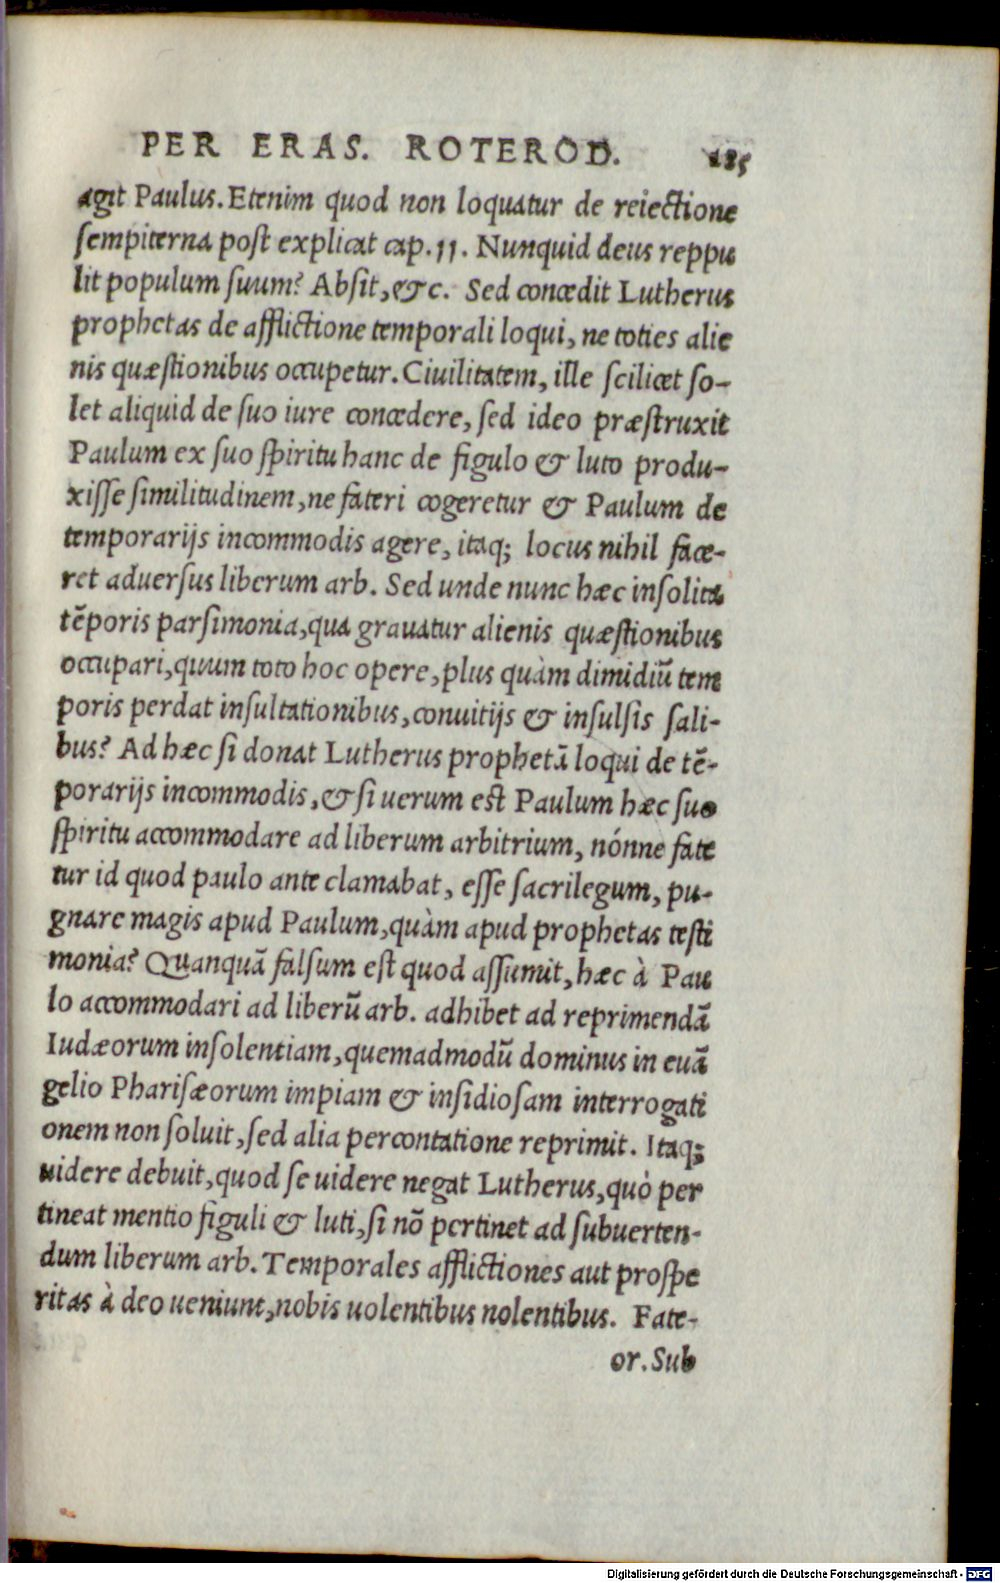 PER ERAS. ROTEROD. 185
agit Paulus. Etenim quod non loquatur de reiectione
sempiterna post explicat cap. 11. Nunquid deus reppu
lit populum suum? Absit, &c. Sed concedit Lutherus
prophetas de afflictione temporali loqui, ne toties alie
nis quæstionibus occupetur. Ciuilitatem, ille scilicet so-
let aliquid de suo iure concedere, sed ideo præstruxit
Paulum ex suo spiritu hanc de figulo & luto produ-
xisse similitudinem, ne fateri cogeretur & Paulum de
temporarijs incommodis agere, itaq; locus nihil face-
ret aduersus liberum arb. Sed unde nunc hæc insolita
tẽporis parsimonia, qua grauatur alienis quæstionibus
occupari, quum toto hoc opere, plus quàm dimidiũ tem
poris perdat insultationibus, conuitijs & insulsis sali-
bus? Ad hæc si donat Lutherus prophetã loqui de tẽ-
porarijs incommodis, & si uerum est Paulum hæc suo
spiritu accommodare ad liberum arbitrium, nónne fate
tur id quod paulo ante clamabat, esse sacrilegum, pu-
gnare magis apud Paulum, quàm apud prophetas testi
monia? Quanquã falsum est quod assumit, hæc à Pau
lo accommodari ad liberũ arb. adhibet ad reprimendã
Iudæorum insolentiam, quemadmodũ dominus in euã
gelio Pharisæorum impiam & insidiosam interrogati
onem non soluit, sed alia percontatione reprimit. Itaq;
uidere debuit, quod se uidere negat Lutherus, quò per
tineat mentio figuli & luti, si nõ pertinet ad subuerten-
dum liberum arb. Temporales afflictiones aut prospe
ritas à deo ueniunt, nobis uolentibus nolentibus. Fate-
or. Sub
Digitalisierung gefördert durch die Deutsche Forschungsgemeinschaft - DFG